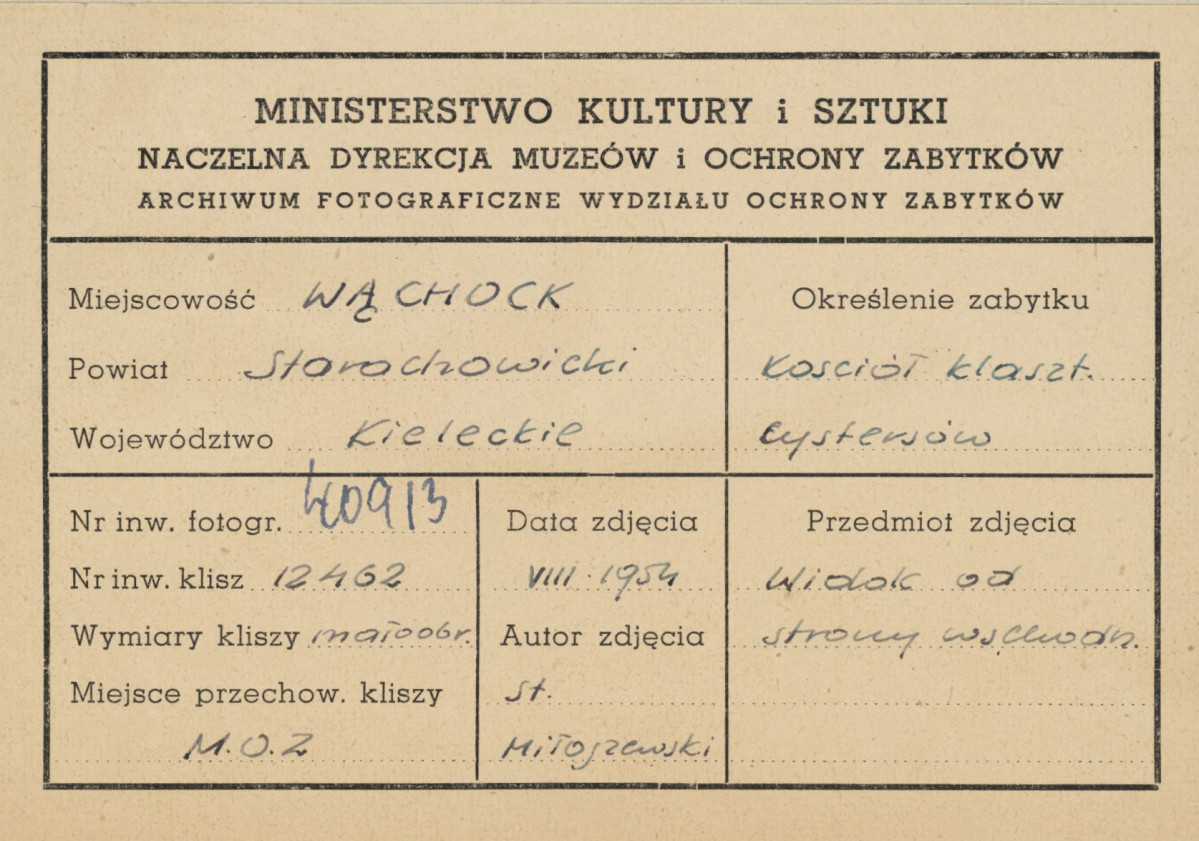 MINISTERSTWO KULTURY i SZTUKI
NACZELNA DYREKCJA MUZEÓW i OCHRONY ZABYTKÓW
ARCHIWUM FOTOGRAFICZNE WYDZIAŁU OCHRONY ZABYTKÓW
Miejscowość WĄCHOCK
Powiat Starachowicki
Województwo Kieleckie
Określenie zabytku
Kościół klaszt.
Cystersów
Nr inw. fotogr. 40913
Nr inw. klisz 12462
Wymiary kliszy małoobr.
Miejsce przechow. kliszy
M.O.Z
Data zdjęcia
VIII 1954
Autor zdjęcia
St.
Miłoszewski
Przedmiot zdjęcia
Widok od
strony wschodn.